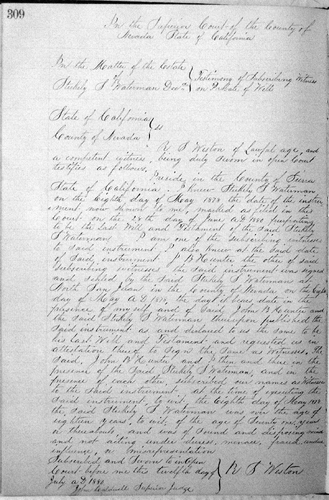 309
In the Superior Court of the County of
Nevada State of California
In the Matter of the Estate
of
Stukely S Waterman Decd
Testimony of Subscribing Witness
on Probate of Will
State of California
County of Nevada
ss
N S Weston of Lawful age, and
a competent witness, being duly sworn in open Court
testifies as follows.
I reside in the County of
State of California. I knew Stukely S Waterman
on the Eighth day of May 1879 the date of the instru
ment now shown to me, marked as filed in this
Court on the 24th day of June A.D. 1880 purporting
to be the last Will and Testament of the said Stukely
S Waterman. I am one of the Subscribing witnesses
to said instrument. I also knew at the said date
of said instrument, J B Henter the other of said
Subscribing witnesses the said instrument was signed
and sealed by the said Stukely S Waterman at
North San Juan in the County of Nevada on the Eighth
day of May A.D. 1879, the day it bears date in the
presence of myself and of said John B Henter and
the said Stukely S Waterman thereupon published the
said instrument as and declared to us the same to be
his last Will and Testament and requested us in
attestation thereof to sign the same as witnesses, the
said John B Henter and I then and there in the
presence of the said Stukely S Waterman, and in the
presence of each other, subscribed our names as witnesses
to the said instrument. At the time of executing the
said instrument, to wit, the Eighth day of May 1879
the said Stukely S Waterman was over the age of
eighteen years, to wit, of the age of years
or thereabouts and was of sound and disposing mind
and not acting under duress, menace, fraud, undue
influence, or misrepresentation
Subscribed and Sworn to in Open
Court before me this twelfth day of
July A.D. 1880
N S Weston
John Caldwell Superior Judge